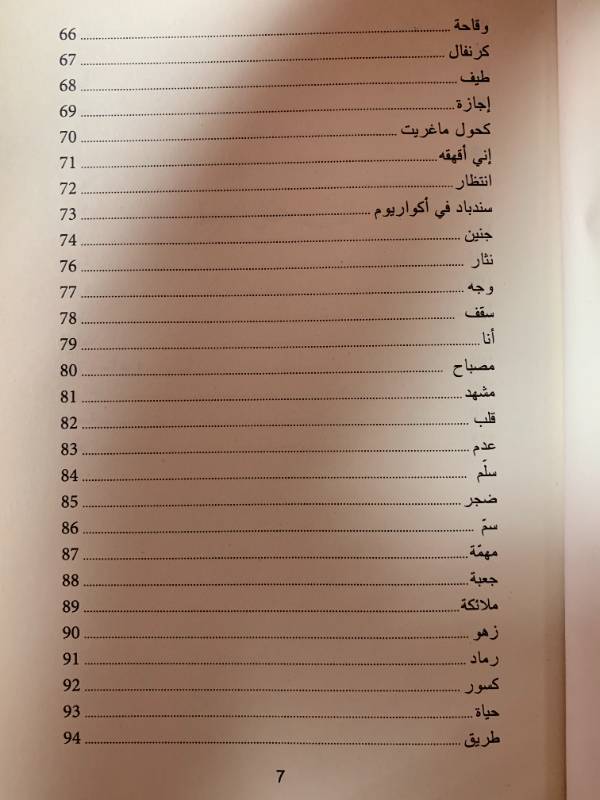 وقاحة ........ 66
كرنفال ........ 67
طيف ........ 68
إجازة ........ 69
كحول ماغريت ........ 70
إني أقهقه ........ 71
انتظار ........ 72
سندباد في أكواريوم ........ 73
جنين ........ 74
نثار ........ 76
وجه ........ 77
سقف ........ 78
أنا ........ 79
مصباح ........ 80
مشهد ........ 81
قلب ........ 82
عدم ........ 83
سلّم ........ 84
ضجر ........ 85
سمّ ........ 86
مهمّة ........ 87
جعبة ........ 88
ملائكة ........ 89
زهو ........ 90
رماد ........ 91
كسور ........ 92
حياة ........ 93
طريق ........ 94
7